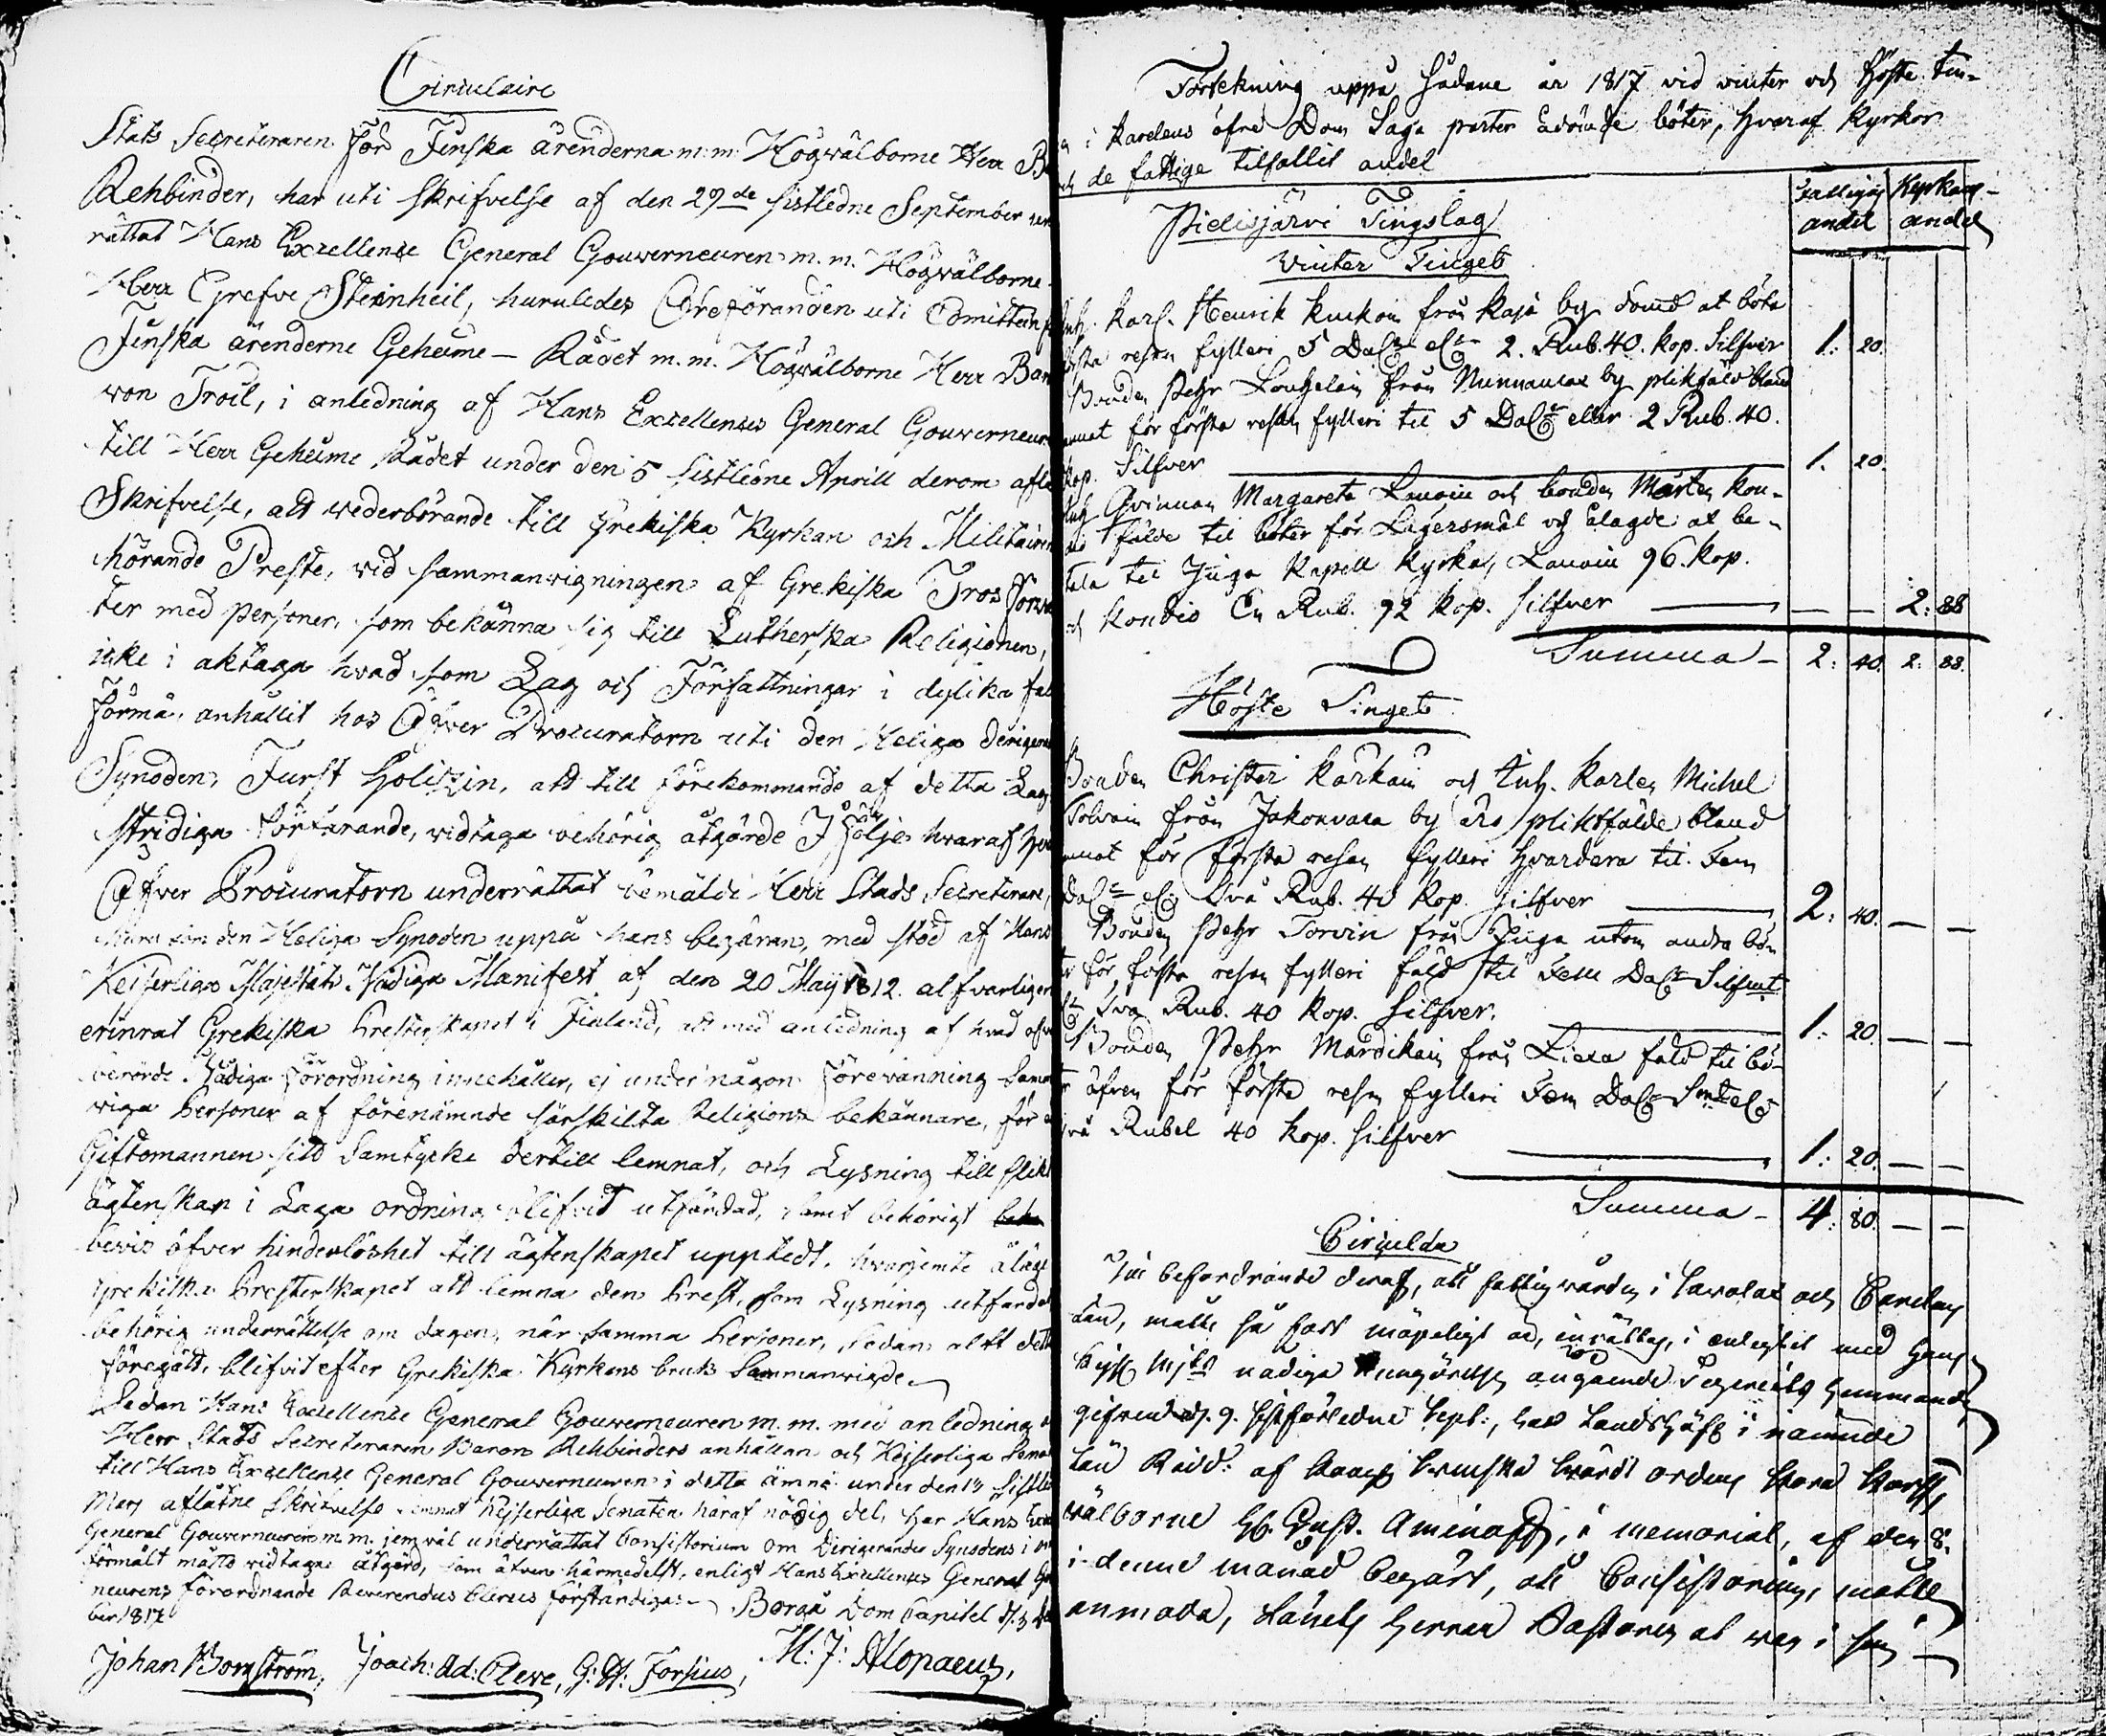 Circulaire
Stats Secreteraren för Finska ärenderna m.m. Högwälborne Herr B
Rehbinder, har uti skrifvelse af den 29de sistledne September un
rättat Hans Excellence General Gouverneuren m.m. Högwälborne
Herr Grefve Steinheil, huruledes Ordföranden uti Comitteen f
Finska ärenderne Geheime-Rådet m.m. Högwälborne Herr Bar
von Troil, i anledning af Hans Excellences General Gouverneur
till Herr Geheime Rådet under den 5 sistledne Aprill derom afl
Skrifvelse, att wederbörande till Grekiska Kyrkan och Militairen
hörande Preste, wid sammanwigningen af Grekiska Tros för
ter med personer, som bekänna sig till Lutherska Religionen,
icke i akttaga hwad som Lag och Författningar i dylika fal
förmå, anhållit hos Öfver Procuratorn uti den Heliga dirigera
Synoden, Furst Golitzin, att till förekommande af detta Lag
stridiga förfarande, widtaga behörig åtgärde I följe hwaraf
Öfver Procuratorn underrättat bemälde Herr Stads Secreterare,
huru som den Heliga Synoden uppå hans begäran, med stöd af Hans
Keiserliga Majestäts Nådiga Manifest af den 20 Maij 1812. alfvarligen
erinrat Grekiska Presterskapet i Finland, att med anledning af hwad
berörde Nådiga förordning innehåller, ej under någon förevänning Sam
wiga Personer af förenämnde särskilta Religions bekännare, för ä
Giftomannen sitt Samtycke dertill lemnat, och Lysning till slikt
ägtenskap i Laga ordning blifvit utfärdad, samt behörigt
bevis öfver hinderlöshet till ägtenskapet upptedt, hwarjemte ålagt
Grekiska Presterskapet att lemna den Prest, som Lysning utfärdat
behörig underrättelse om dagen, när samma Personer, sedan alt dett
föregått, blifvit efter Grekiska Kyrkans bruk Sammanwigde.
Sedan Hans Excellence General Gouverneuren m.m. med anledning
Herr Stats Secreteraren Baron Rehbinders anhållan och Keijserliga Sena
till Hans Excellence General Gouverneuren i detta ämne under den 17 sistle
Maij aflåtne Skrifvelse lemnat Keijserliga Senaten häraf nödig del, har Hans
General Gouverneuren m.m. jemväl underrättat Consistorium om Dirigerande Synodens i
förmält måtto widtagne åtgärd, som äfven härmedelst, enligt Hans Excellences General G
neurens förordnande Reverendus Clerus förständigas. Borgå Dom Capitel d.
ber 1817
Johan Borgström, Joach: Ad: Cleve, G: H: Forsius, M: J: Alopaeus,
Förtekning uppå sådane år 1817 vid winter och Höste tin-
i Karelens öfre Dom Saga parter ådömde böter, hvaraf Kyrkor
och de fattige tilfallit andel
Fattigas andel Kyrkans andel
Pielisjärvi Tingslag
Winter Tinget
Karl. Henrik Kuckoin från Kajo by dömd at böta
första resan fylleri 5 Dal. 2. Rub. 40. kop. Silfver 1: 20.
Bonden Pehr från Nunnanlax by pliktfäld bland
annat för första resan fylleri til 5 Dal. eller 2 Rub. 40.
kop. Silfver 1. 20.
Qvinnan Margareta Lauoin och bonden Mårten Kon-
fälde til böter för Lägersmål och ålagde at be-
tala til Juga Kapell Kyrka, Lauoin 96. kop.
och Kontio En Rub. 92 kop. silfver — — 2: 88
Summa - 2: 40. 2: 88.
Höste Tinget
Bonden Christer Karkain och Inh. Karlen Michel
Tolvain från Jakonvara by äro pliktfälde bland
annat för första resan fylleri hvardera til Fem
Dal. två Rub. 40 kop. Silfver 2: 40. — —
Bonden Pehr Torvin från Juga utom andra bö-
ter för första resan fylleri fäld til Fem Dal. Silfmt
två Rub. 40 kop. Silfver. 1: 20 — —
Bonden Pehr Mardikain från Liexa fäld til bö-
ter äfven för första resan fylleri Fem Dal.
två Rubel 40 kop. silfver 1: 20. — —
Summa - 4: 80. — —
Till befordrande deraf, att fattigvården i Savolax och Carelens
Län, måtte så fort möjeligt är, inrättas, i enlighet med Hans
Kejs. Majts nådiga Kungörelse angående
gifven d. 9. sistförledne Sept:, har Landshöfd. i nämnde
Län Ridd: af Kongl. Svenska Svärds orden Stora Korss,
wälborne Hr. Gust. Aminoff, i memorial, af den 8.
i denne månad begärt, att Consistorium, måtte
anmoda, Länets Herrar Pastorer at var i sin